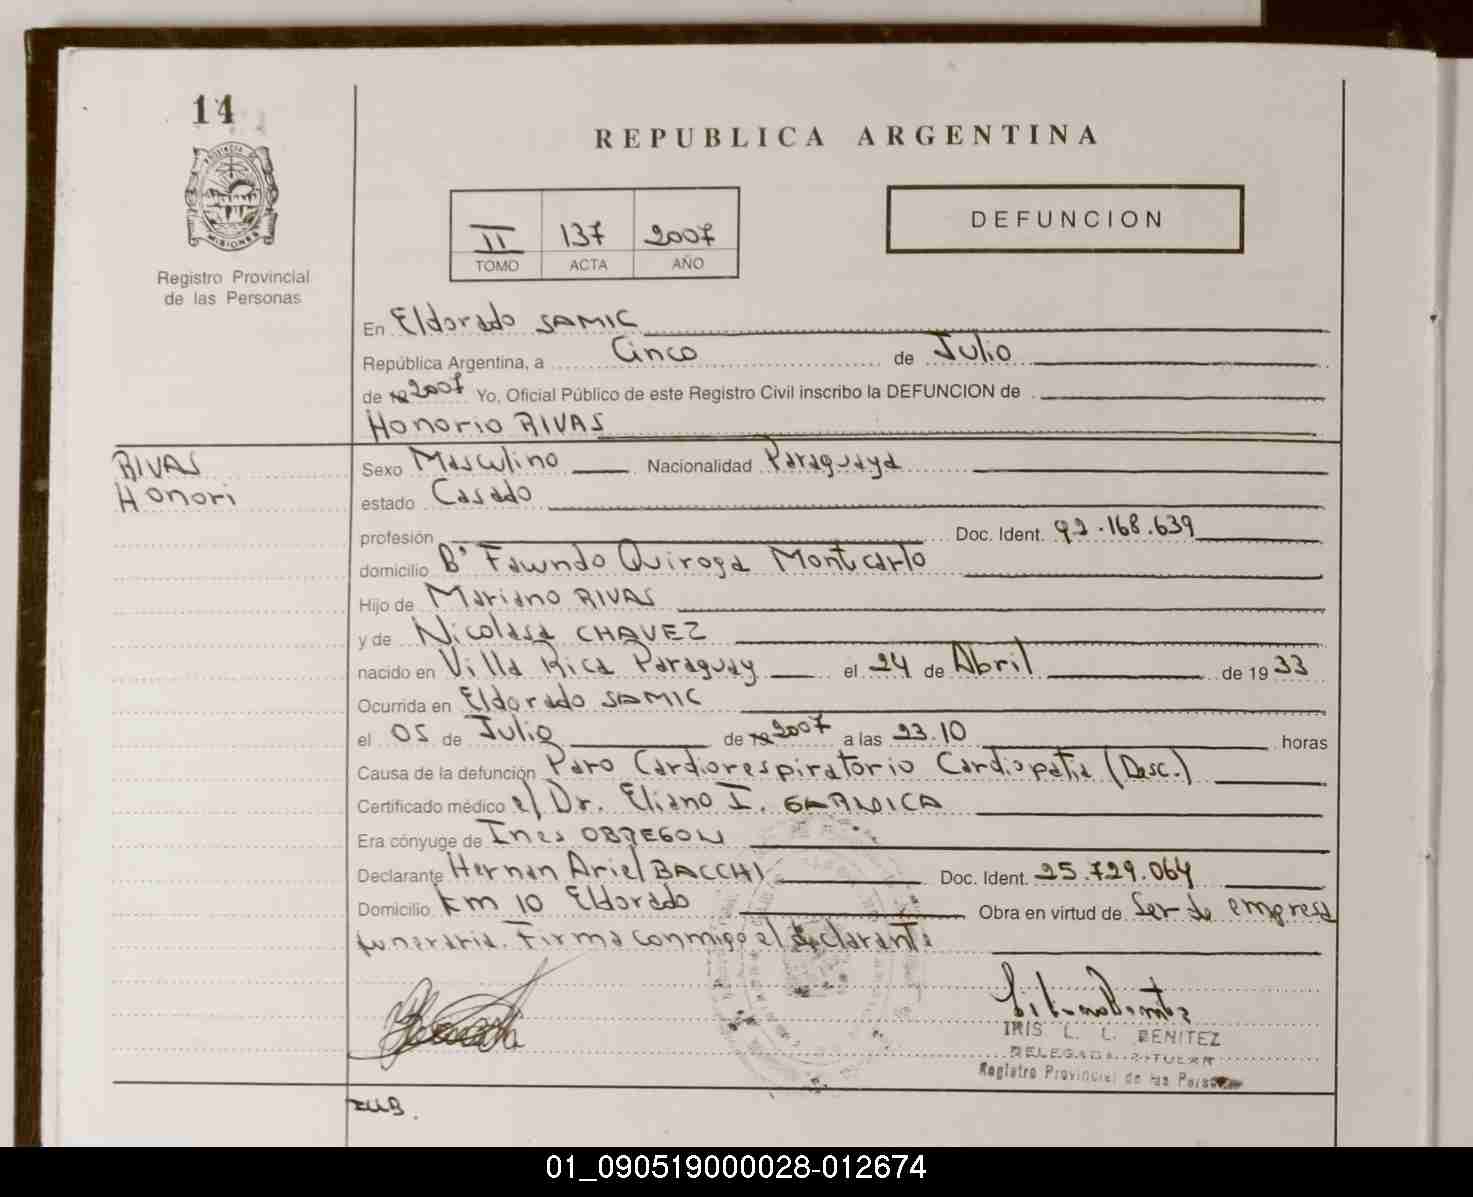 14
REPUBLICA ARGENTINA
PROVINCIA
MISIONES
Registro Provincial
de las Personas
II 137 2007
TOMO ACTA AÑO
DEFUNCION
En Eldorado SAMIC
República Argentina, a Cinco de Julio
de 2007 Yo, Oficial Público de este Registro Civil inscribo la DEFUNCION de
Honorio RIVAS
RIVAS
Honori
Sexo Masculino Nacionalidad Paraguaya
estado Casado
profesión Doc. Ident. 92.168.639
domicilio Bº Facundo Quiroga Montecarlo
Hijo de Mariano RIVAS
y de Nicolasa CHAVEZ
nacido en Villa Rica Paraguay el 24 de Abril de 1933
Ocurrida en Eldorado SAMIC
el 05 de Julio de 2007 a las 23.10 horas
Causa de la defunción Paro Cardiorespiratorio Cardiopatia (Desc.)
Certificado médico el Dr. Eliano I.
Era cónyuge de Ines OBREGON
Declarante Hernan Ariel BACCHI Doc. Ident. 25.729.064
Domicilio Km 10 Eldorado Obra en virtud de Ser de empresa
funeraria. Firma conmigo el declarante
IRIS L. L. BENITEZ
DELEGADA TITULAR
Registro Provincial de las Personas
01_090519000028-012674